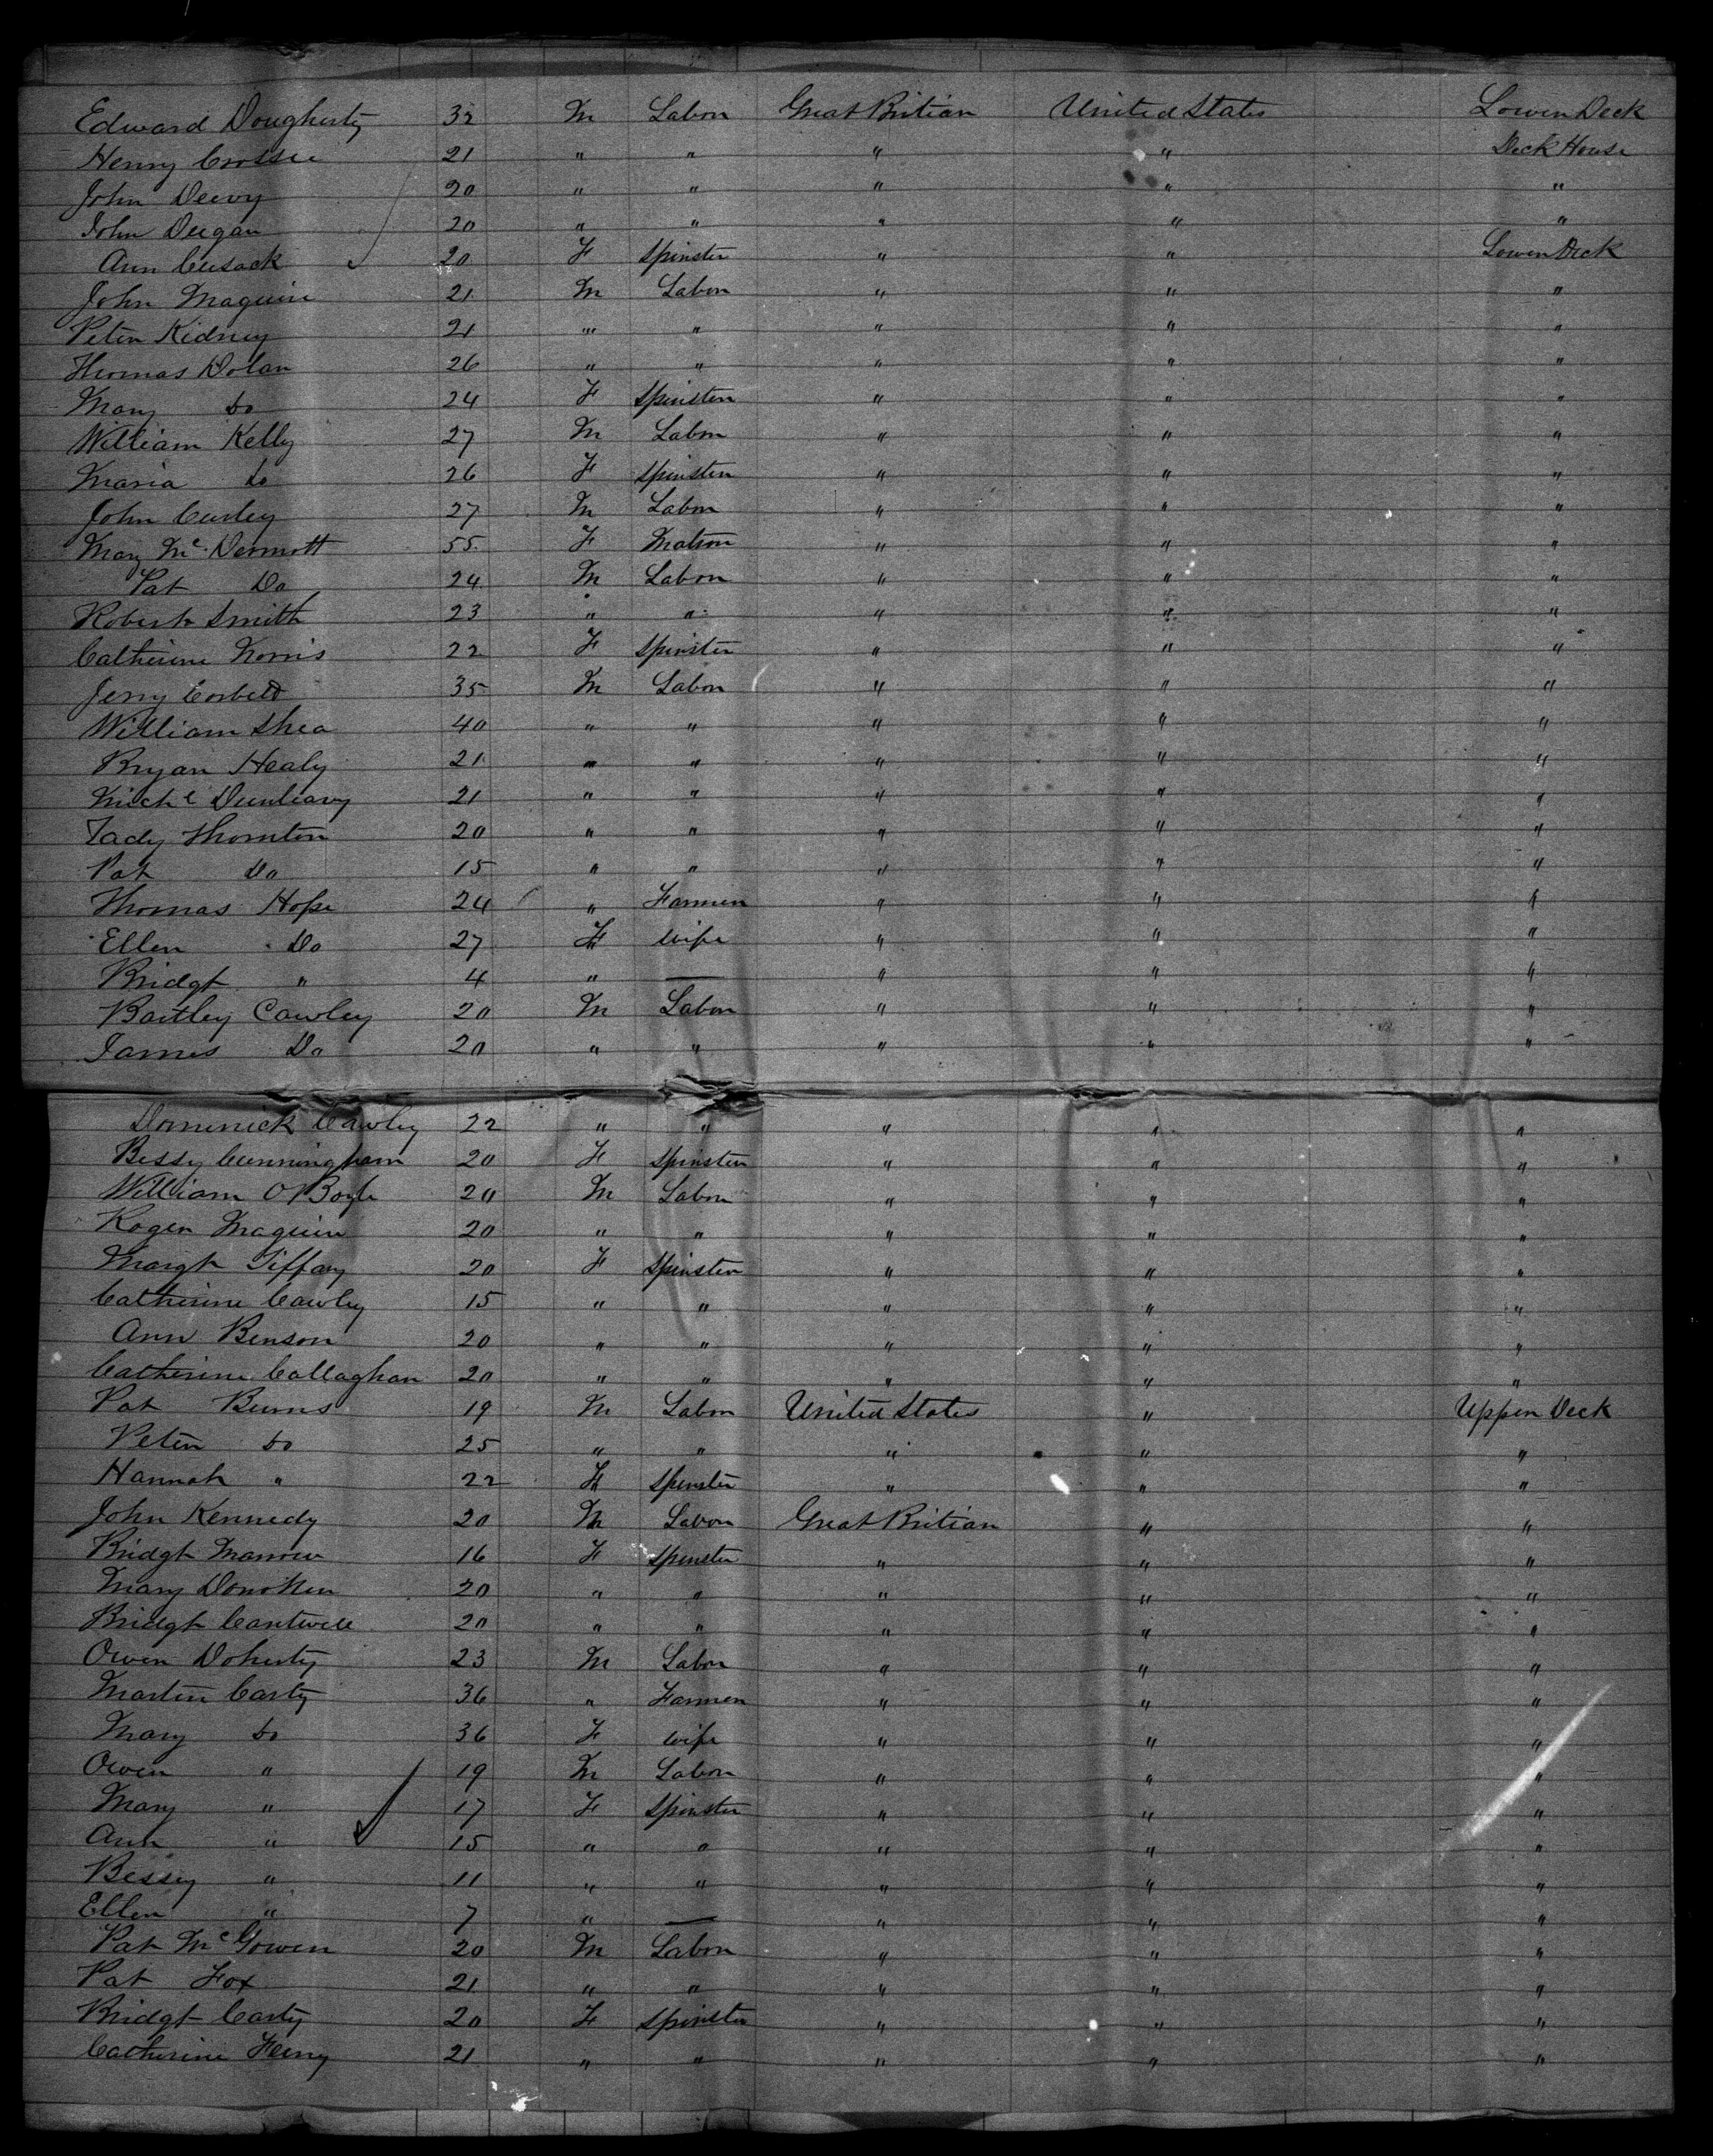 Edward Dougherty 32 M Labor Great Britian United States Lower Deck
Henry Crossee 21 " " " " Deck House
John Deevy 20 " " " " "
John Deegan 20 " " " " "
Ann Cusack 20 F Spinster " " Lower Deck
John Maguire 21 M Labor " " "
Peter Kidney 21 " " " " "
Thomas Dolan 26 " " " " "
Mary do 24 F Spinster " " "
William Kelly 27 M Labor " " "
Maria do 26 F Spinster " " "
John Curley 27 M Labor " " "
Mary McDermott 55 F Matron " " "
Pat Do 24 M Labor " " "
Robert Smith 23 " " " " "
Catherine Norris 22 F Spinster " " "
Jerry Corbett 35 M Labor " " "
William Shea 40 " " " " "
Bryan Healy 21 " " " " "
Michl Dunleavy 21 " " " " "
Tady Thornton 20 " " " " "
Pat Do 15 " " " " "
Thomas Hope 24 " Farmer " " "
Ellen Do 27 F Wife " " "
Bridgt " 4 " — " " "
Bartley Cawley 20 M Labor " " "
James Do 20 " " " " "
Dominick Cawley 22 " " " " "
Bessy Cunningham 20 F Spinster " " "
William O'Boyle 20 M Labor " " "
Roger Maguire 20 " " " " "
Margt Tiffany 20 F Spinster " " "
Catherine Cawley 15 " " " " "
Ann Benson 20 " " " " "
Catherine Callaghan 20 " " " " "
Pat Burns 19 M Labor United States " Upper Deck
Peter do 25 " " " " "
Hannah " 22 F Spinster " " "
John Kennedy 20 M Labor Great Britian " "
Bridgt 16 F Spinster " " "
Mary 20 " " " " "
Bridgt Cantwell 20 " " " " "
Owen Doherty 23 M Labor " " "
Martin Carty 36 " Farmer " " "
Mary do 36 F Wife " " "
Owen " 19 M Labor " " "
Mary " 17 F Spinster " " "
Ann " 15 " " " " "
Bessy " 11 " " " " "
Ellen " 7 " — " " "
Pat McGowen 20 M Labor " " "
Pat Fox 21 " " " " "
Bridgt Carty 20 F Spinster " " "
Catherine 21 " " " " "